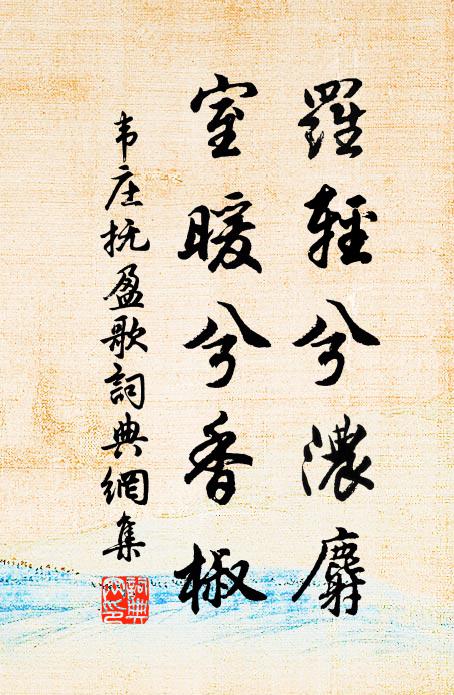 羅輕兮濃麝
室暖兮香椒
韦庄抚盈歌詞典網集